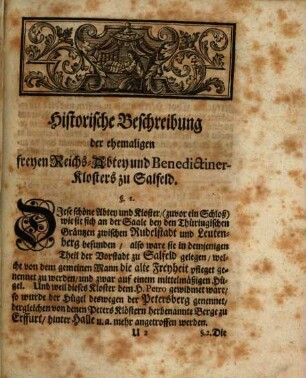 Historische Beschreibung
der ehemaligen
freyen Reichs-Abtey und Benedictiner-
Klosters zu Salfeld.
§. 1.
Diese schöne Abtey und Kloster, (zuvor ein Schloß)
wie sie sich an der Saale bey den Thüringischen
Gräntzen zwischen Rudelstadt und Leuten-
berg befunden / also ware sie in demjenigen
Theil der Vorstadt zu Salfeld gelegen, wel-
cher von dem gemeinen Mann die alte Freyheit pfleget ge-
nennet zu werden, und zwar auf einem mittelmäßigen Hü-
gel. Und weil dieses Kloster dem H. Petro gewidmet ware/
so wurde der Hügel deswegen der Petersberg genennet,
dergleichen von denen Peters Klöstern herbenannte Berge zu
Erffurt / hinter Halle u. a. mehr angetroffen werden.
U 2 §. 2. Die